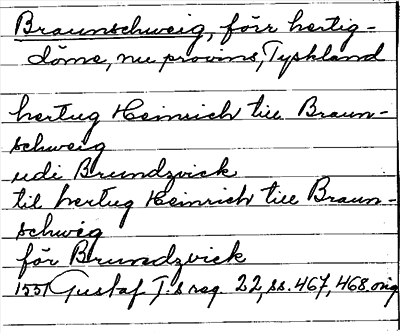 Braunschweig, förr hertig-
döme, nu provins, Tyskland
hertug Heinrich till Braun-
schweig
udi Brundzvick
til hertug Heinrich till Braun-
schwèg
för Brundzvick
1551 Gustaf I:s reg. 22, ss. 467, 468. orig